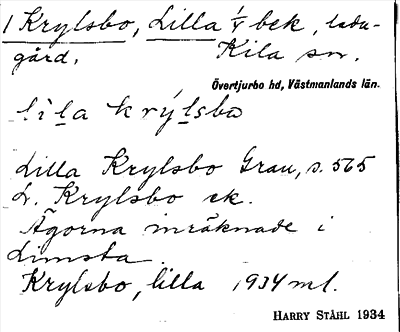 1 Krylsbo, Lilla 1/4 bek, ladu-
gård, Kila sn.
Övertjurbo hd, Västmanlands län.
lìla krýlsbo
Lilla Krylsbo Grau, s. 565
L. Krylsbo ek.
Ägorna inräknade i
Limsta
Krylsbo, lilla 1934 ml.
HARRY STÅHL 1934